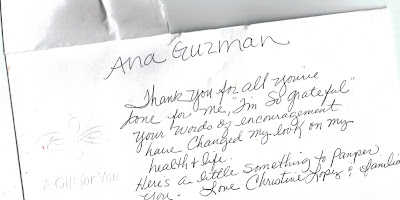 Ana Guzman
Thank you for all you've
done for me, "I'm So grateful"
Your words of encouragement
have Changed my look on my
health & life.
Here's a little Something to Pamper
you. Love Christine Lopez & familia
A Gift for You